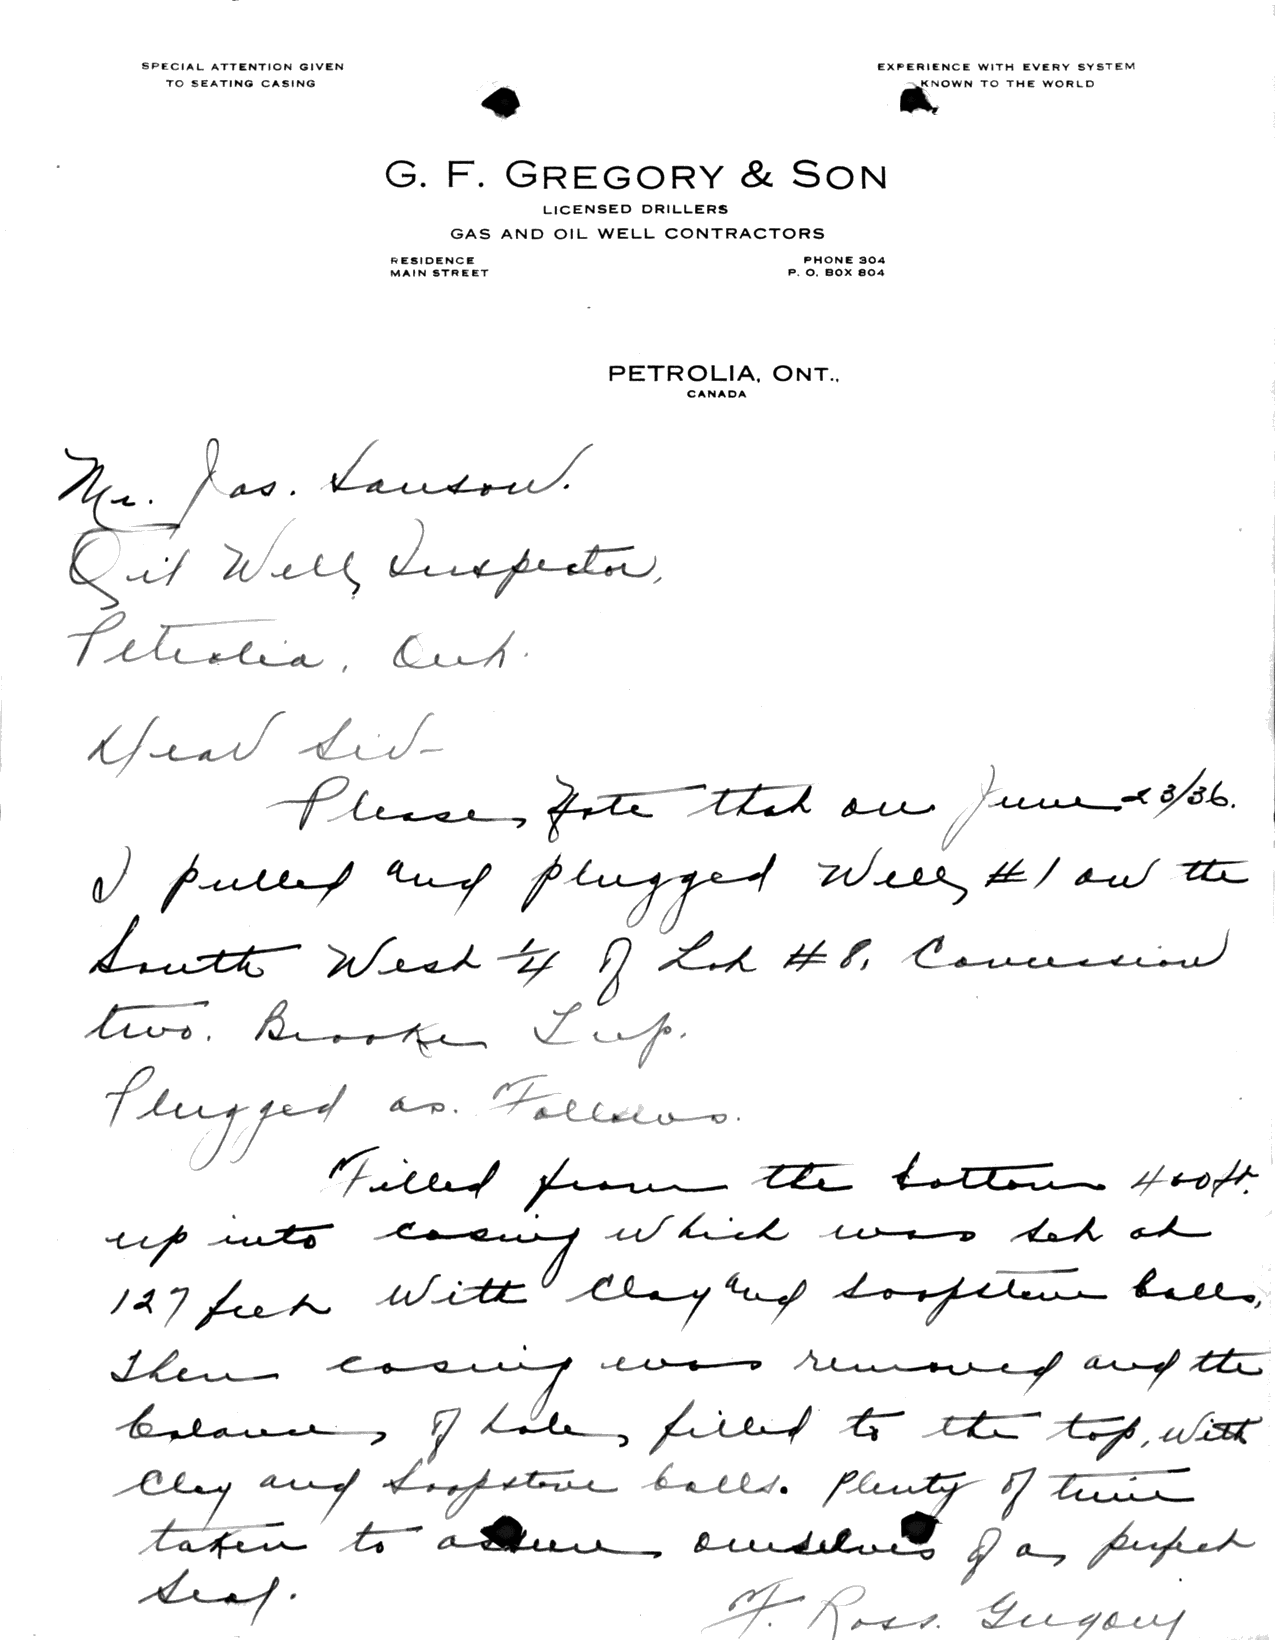 SPECIAL ATTENTION GIVEN
TO SEATING CASING
EXPERIENCE WITH EVERY SYSTEM
KNOWN TO THE WORLD
G. F. GREGORY & SON
LICENSED DRILLERS
GAS AND OIL WELL CONTRACTORS
RESIDENCE
MAIN STREET
PHONE 304
P. O. BOX 804
PETROLIA, ONT.,
CANADA
Mr. Jas. Lawson.
Oil Well Inspector,
Petrolia, Ont.
Dear Sir-
Please Note that on June 23/36.
I pulled and plugged Well #1 on the
South West 1/4 of Lot #8, Concession
two. Brooke Twp.
Plugged as. Follows.
Filled from the bottom 400 ft.
up into casing which was set at
127 feet with clay and soapstone balls,
Then casing was removed and the
balance of hole filled to the top, with
clay and soapstone balls. Plenty of time
taken to assure ourselves of a perfect
seal.
F. Ross. Gregory